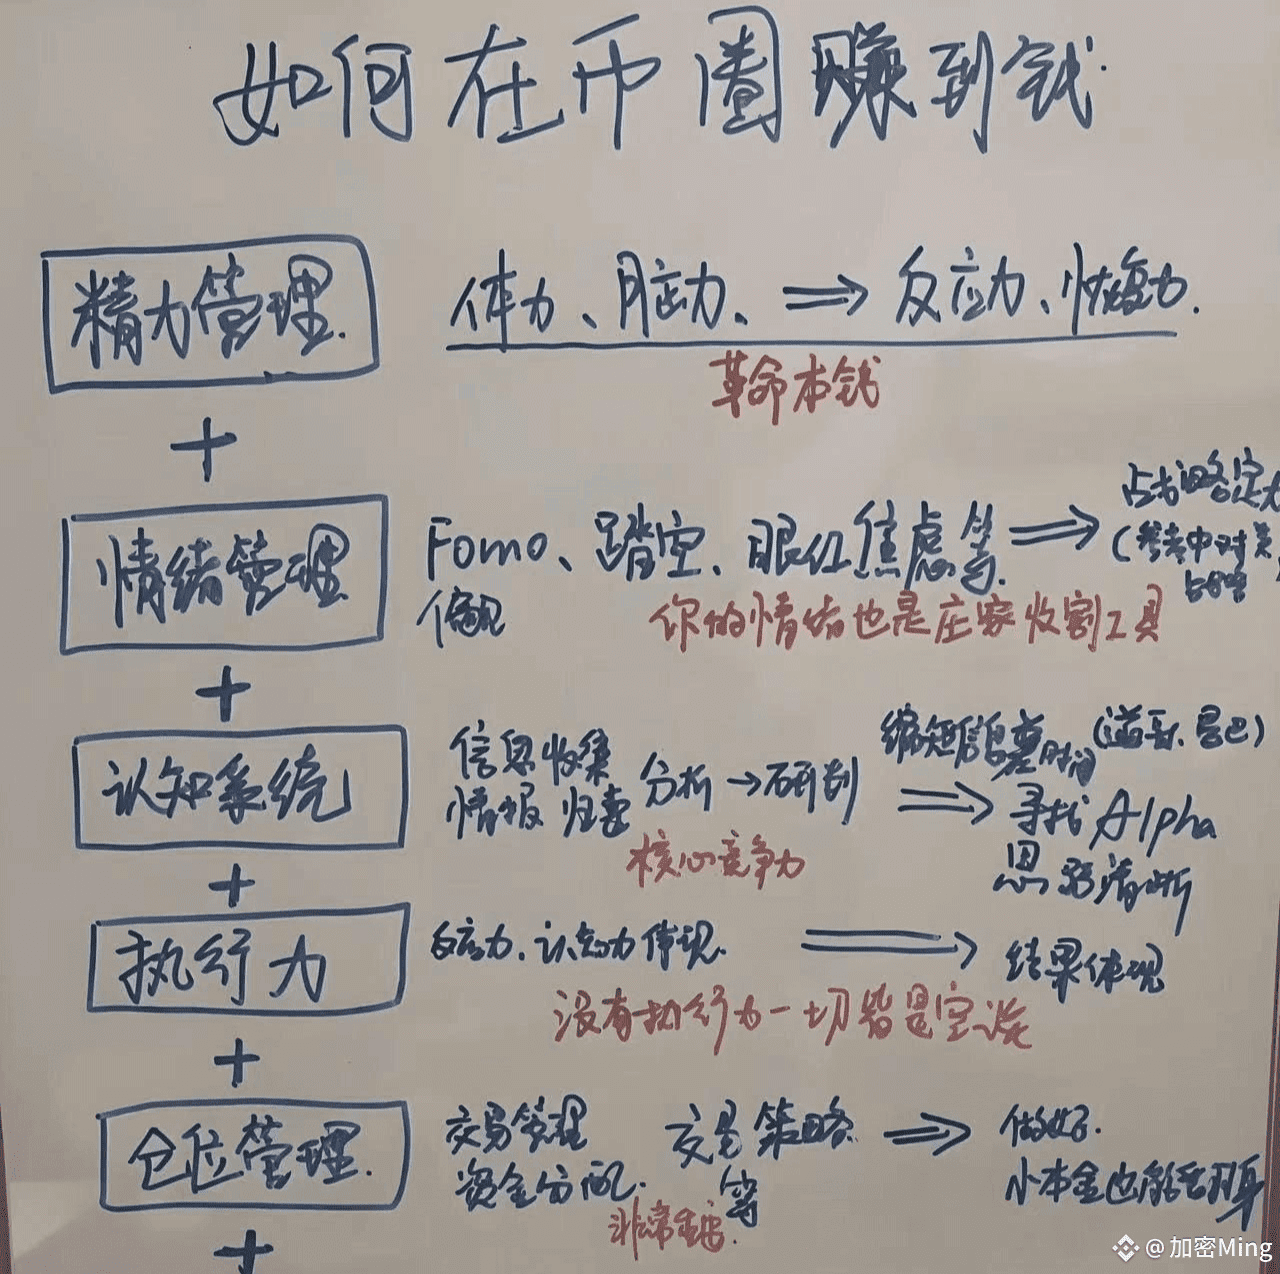 如何在币圈赚到钱.
精力管理.
体力、脑力、⇒ 反应力、恢复力.
革命本钱
+
情绪管理
Fomo、踏空、眼红焦虑等. ⇒
偏见
占战略定
(参考中对关
你的情绪也是庄家收割工具
+
认知系统
信息收集
情报 归类
分析→研判
⇒
缩短信息差时间
寻找Alpha
思路清晰
核心竞争力
+
执行力
反应力、认知力体现. ⇒ 结果体现
没有执行力一切皆是空谈
+
仓位管理.
交易管理
资金分配.
交易策略
等
⇒
做好.
小本金也能翻身
非常重要.
+
@加密Ming